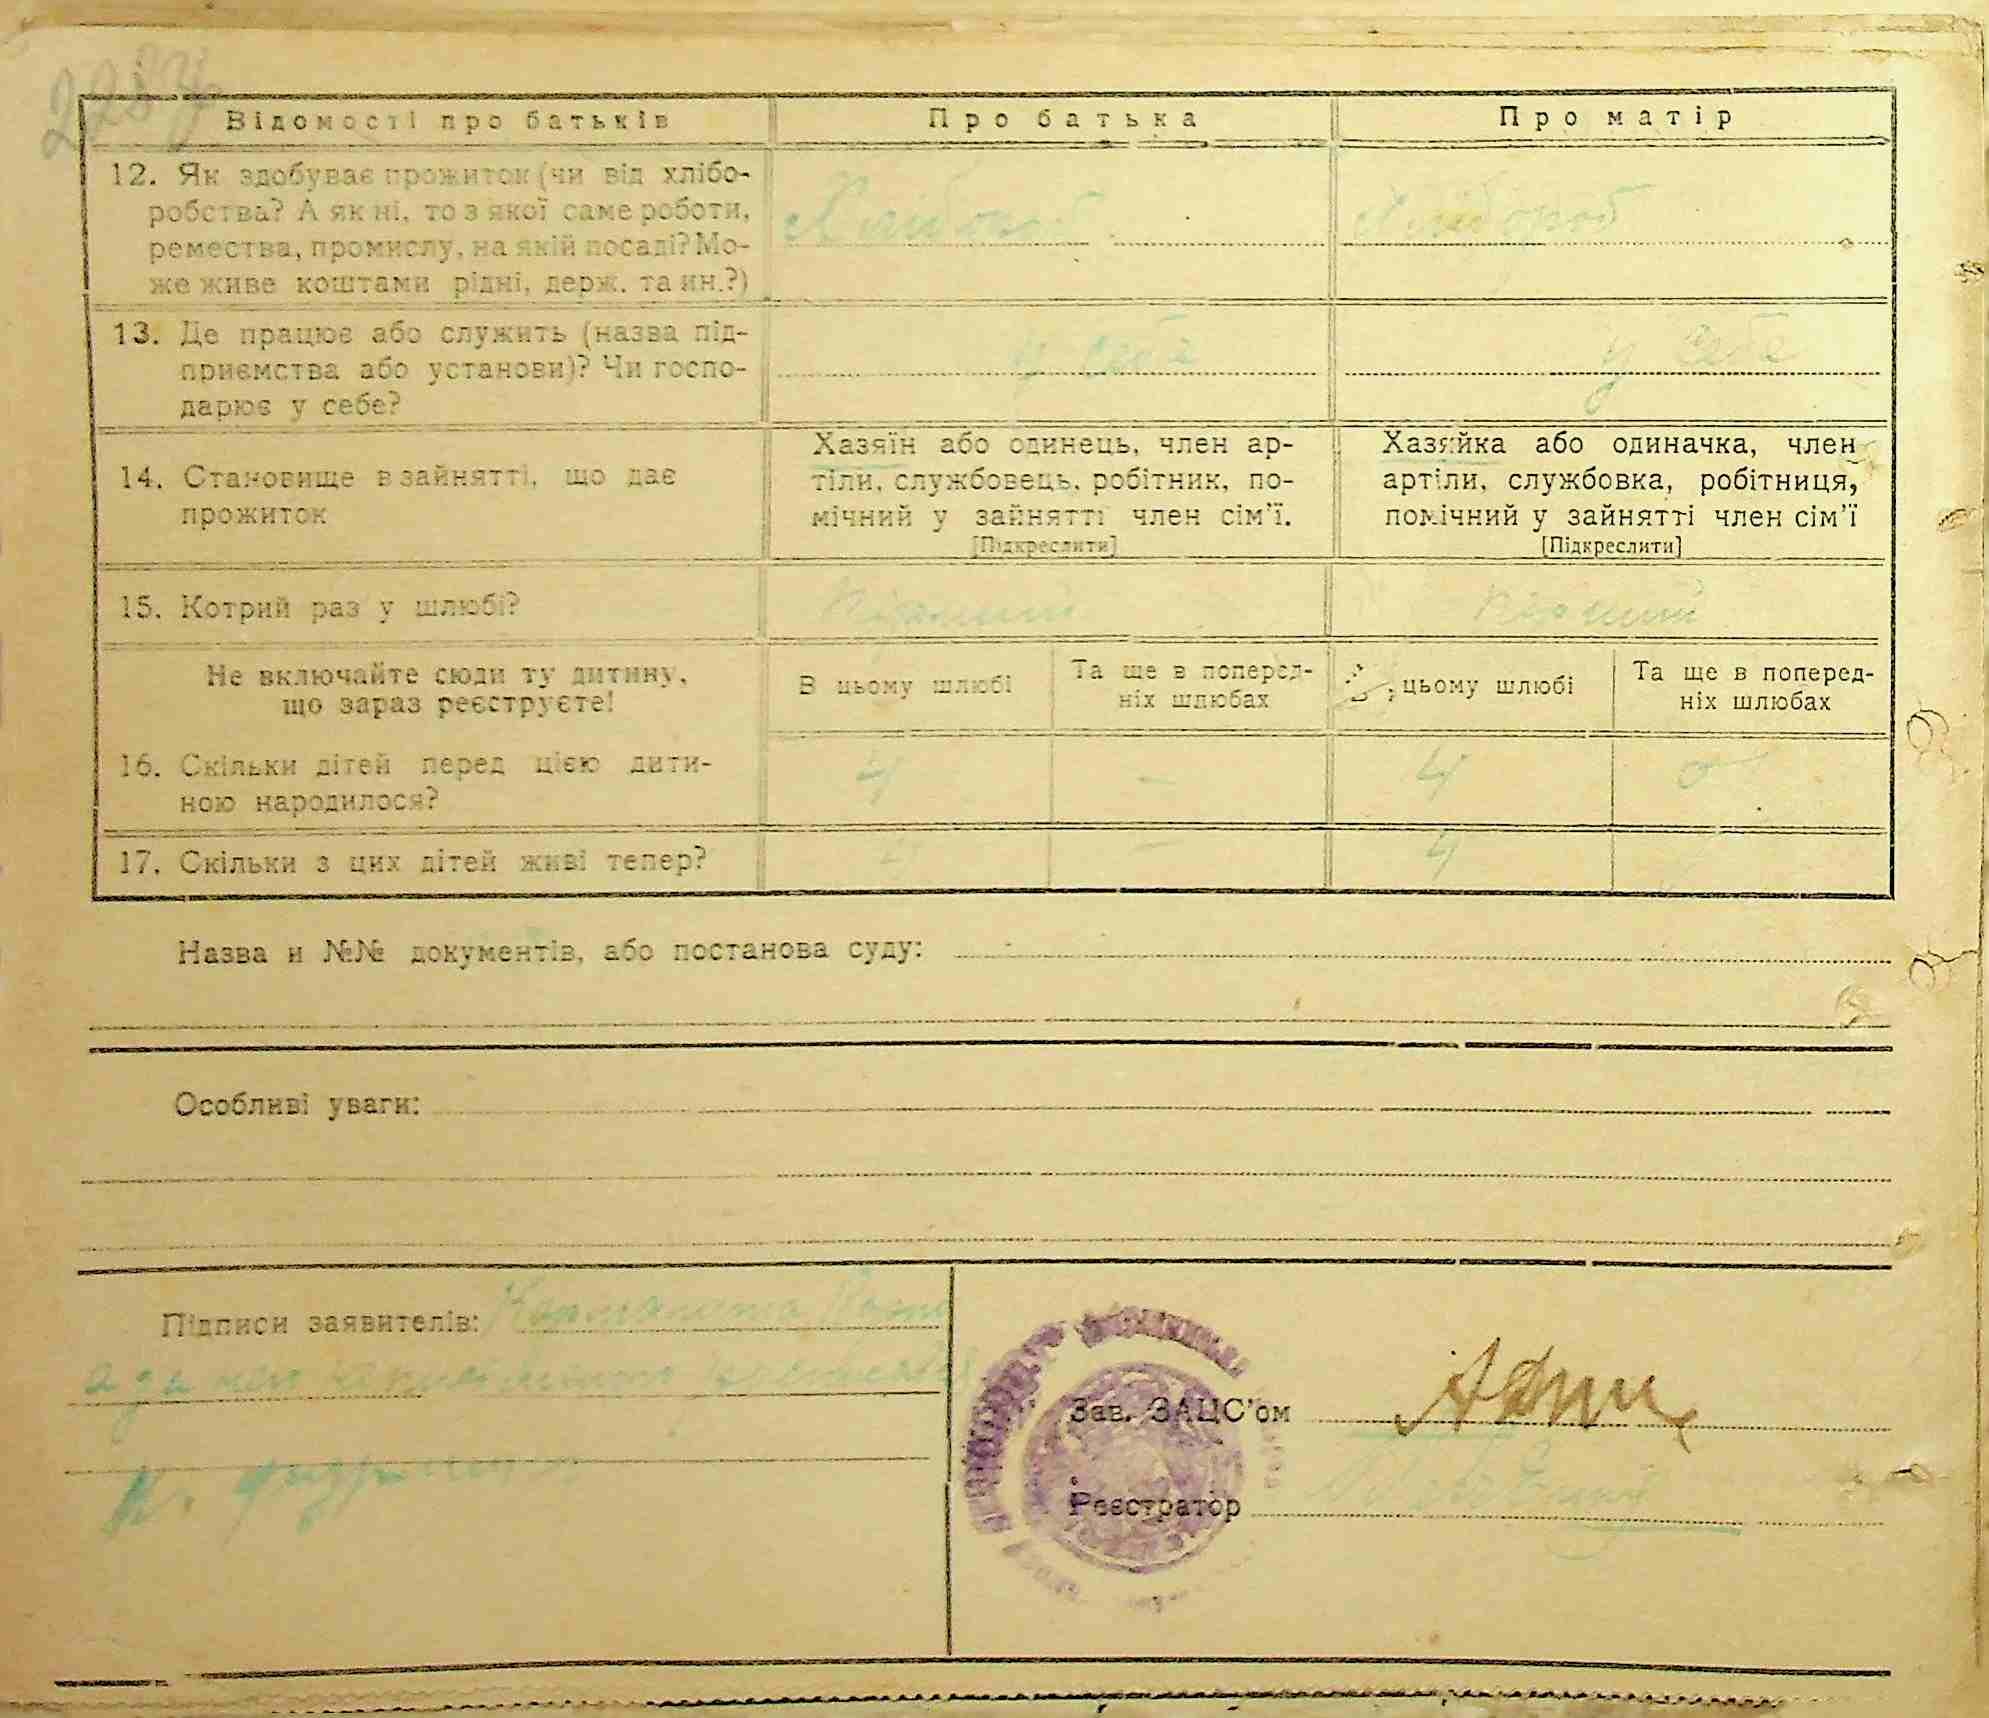 228
Відомості про батьків
Про батька
Про матір
12. Як здобуває прожиток (чи від хлібо-
робства? А як ні, то з якої саме роботи,
ремества, промислу, на якій посаді? Мо-
же живе коштами рідні, держ. та ин.?)
Хлібороб
Хлібороб
13. Де працює або служить (назва під-
приємства або установи)? Чи госпо-
дарює у себе?
у себе
у себе
14. Становище в зайнятті, що дає
прожиток
Хазяїн або одинець, член ар-
тіли, службовець, робітник, по-
мічний у зайнятті член сім'ї.
[Підкреслити]
Хазяйка або одиначка, член
артіли, службовка, робітниця,
помічний у зайнятті член сім'ї
[Підкреслити]
15. Котрий раз у шлюбі?
Перший
Перший
Не включайте сюди ту дитину,
що зараз реєструєте!
В цьому шлюбі
Та ще в поперед-
ніх шлюбах
В цьому шлюбі
Та ще в поперед-
ніх шлюбах
16. Скільки дітей перед цією дити-
ною народилося?
4
–
4
0
17. Скільки з цих дітей живі тепер?
4
–
4
Назва и №№ документів, або постанова суду:
Особливі уваги:
Підписи заявителів:
Зав. ЗАЦС'ом
Реєстратор